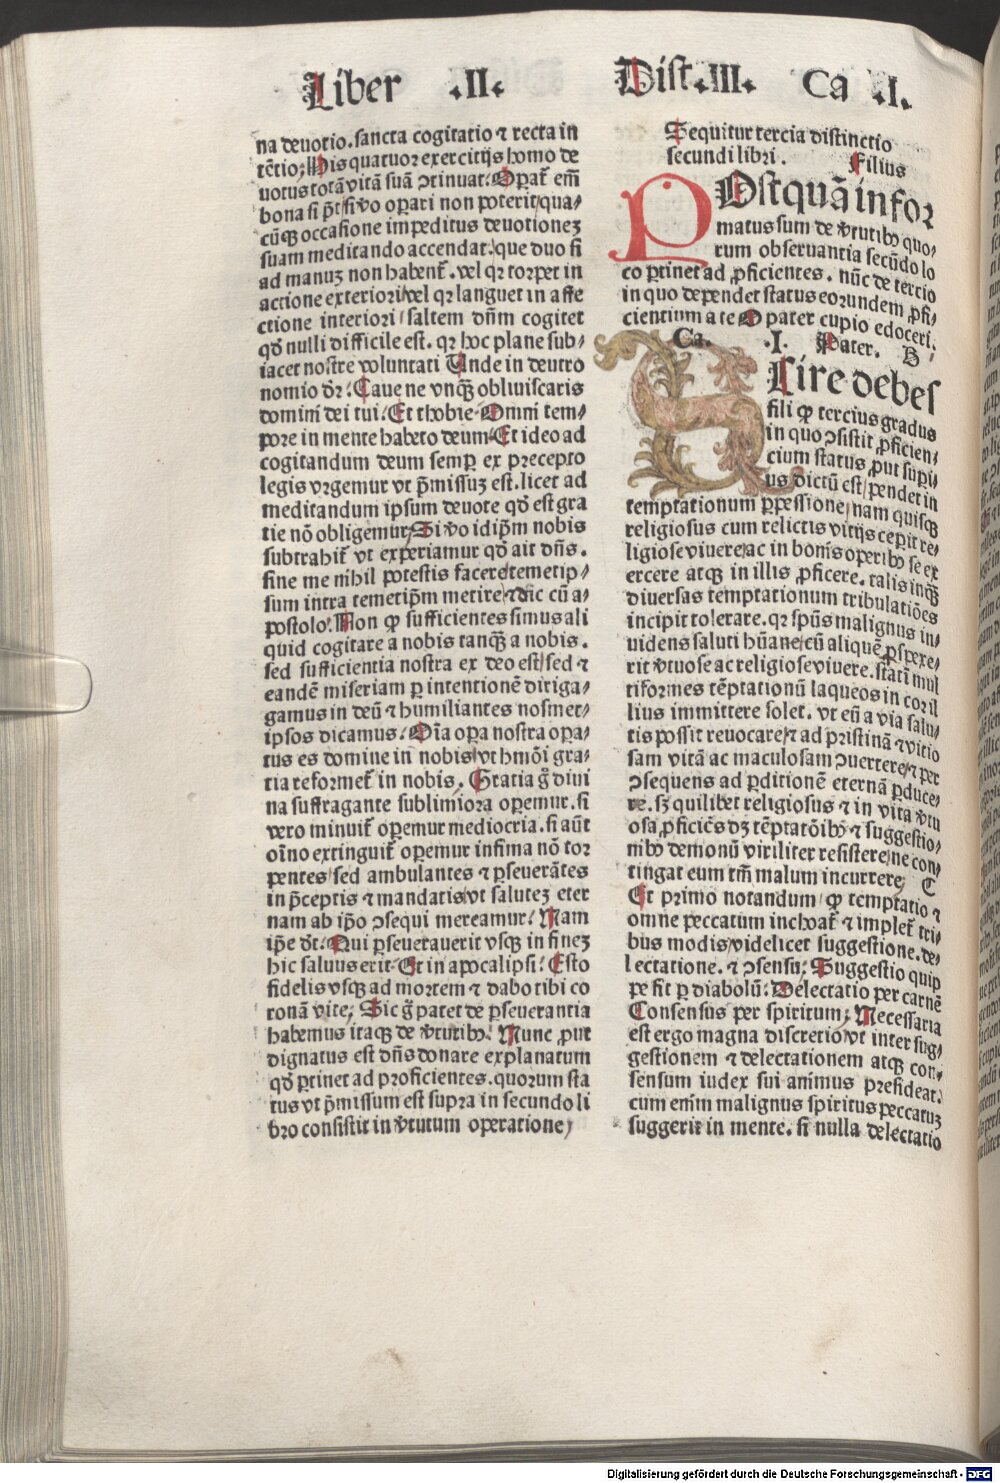 Liber .II.
Dist.III. Ca .I.
na deuotio.sancta cogitatio ⁊ recta in
tētio; His quatuor exercitijs homo de
uotus totā vitā suā ↄtinuat. Oꝑat̄ em̄
bona si p̄t/si v̄o oꝑari non poterit/qua⸗
cūqꝫ occasione impeditus deuotionez
suam meditando accendat.que duo si
ad manuz non habent̄.vel qꝛ torpet in
actione exteriori/vel qꝛ languet in affe
ctione interiori/saltem dn̄m cogitet
qd̄ nulli difficile est. qꝛ hoc plane sub⸗
iacet nostre voluntati Unde in deutro
nomio dꝛ. Caue ne vnqꝫ obliuiscaris
domini dei tui. Et thobie. Omni tem⸗
pore in mente habeto deum. Et ideo ad
cogitandum deum semꝑ ex precepto
legis vrgemur vt p̄missuz est.licet ad
meditandum ipsum deuote qd̄ est gra
tie nō obligemur. Si v̄o idip̄m nobis
subtrahit̄ vt experiamur qd̄ ait dn̄s.
sine me nihil potestis facere/temetip⸗
sum intra temetip̄m metire/⁊ dic cū a⸗
postolo. Non ꝙ sufficientes simus ali
quid cogitare a nobis tanqꝫ a nobis.
sed sufficientia nostra ex deo est/sed ⁊
eandē miseriam ꝑ intentionē diriga⸗
gamus in deū ⁊ humiliantes nosmet⸗
ipsos dicamus. Oīa oꝑa nostra oꝑa⸗
tus es domine in nobis/vt hmōi gra⸗
tia reformet̄ in nobis. Gratia gͦ diui
na suffragante sublimiora oꝑemur.si
vero minuit̄ oꝑemur mediocria.si aūt
oīno extinguit̄ oꝑemur infima nō tor
pentes/sed ambulantes ⁊ ꝑseuerātes
in p̄ceptis ⁊ mandatis/vt salutez eter
nam ab ip̄o ↄsequi mereamur. Nam
ip̄e dr̄. Qui ꝑseuerauerit vsqꝫ in finez
hic saluus erit. Et in apocalipsi. Esto
fidelis vsqꝫ ad mortem ⁊ dabo tibi co
ronā vite; Sic gͦ patet de ꝑseuerantia
habemus itaqꝫ de v̄tutibꝰ. Nunc ꝓut
dignatus est dn̄s donare explanatum
qd̄ ꝑtinet ad proficientes.quorum sta
tus vt p̄missum est supra in secundo li
bro consistit in v̄tutum operatione;
Sequitur tercia distinctio
secundi libri. Filius
POstquā infor
matus sum de v̄tutibꝰ quo⸗
rum obseruantia secūdo lo
co ꝑtinet ad ꝓficientes. nūc de tercio
in quo dependet status eorundem ꝓfi⸗
cientium a te O pater cupio edoceri.
Ca. .I. Pater. B
SCire debes
fili ꝙ tercius gradus
in quo ↄsistit ꝓficien⸗
cium status ꝓut suꝑi⸗
us dictū est/pendet in
temptationum ꝑpessione/nam quisqꝫ
religiosus cum relictis vitijs ceꝑit re⸗
ligiose viuere/ac in bonis operibꝰ se ex
ercere atqꝫ in illis ꝓficere. talis inqꝫ
diuersas temptationum tribulatiōes
incipit tolerare. qꝛ spūs malignus in⸗
uidens saluti hūane/cū aliquē ꝓspexe⸗
rit v̄tuose ac religiose viuere. statī mul
tiformes tēptationū laqueos in cor il
lius immittere solet. vt eū a via salu⸗
tis possit reuocare/⁊ ad pristinā ⁊ vitio
sam vitā ac maculosam ↄuertere/⁊ per
ↄsequens ad ꝑditionē eternā ꝑduce⸗
re. sꝫ quilibet religiosus ⁊ in vita v̄tu
osa ꝓficiēs dꝫ tēptatōibꝰ ⁊ suggestio⸗
nibꝰ demonū viriliter resistere/ne con⸗
tingat eum tm̄ malum incurrere; C
Et primo notandum ꝙ temptatio ⁊
omne peccatum inchoat̄ ⁊ implet̄ tri⸗
bus modis/videlicet suggestione.de⸗
lectatione. ⁊ ↄsensu; Suggestio quip
pe fit ꝑ diabolū. Delectatio per carnē
Consensus per spiritum; Necessaria
est ergo magna discretio/vt inter sug⸗
gestionem ⁊ delectationem atqꝫ con⸗
sensum iudex sui animus presideat.
cum enim malignus spiritus peccatuz
suggerit in mente. si nulla delectatio
Digitalisierung gefördert durch die Deutsche Forschungsgemeinschaft - DFG